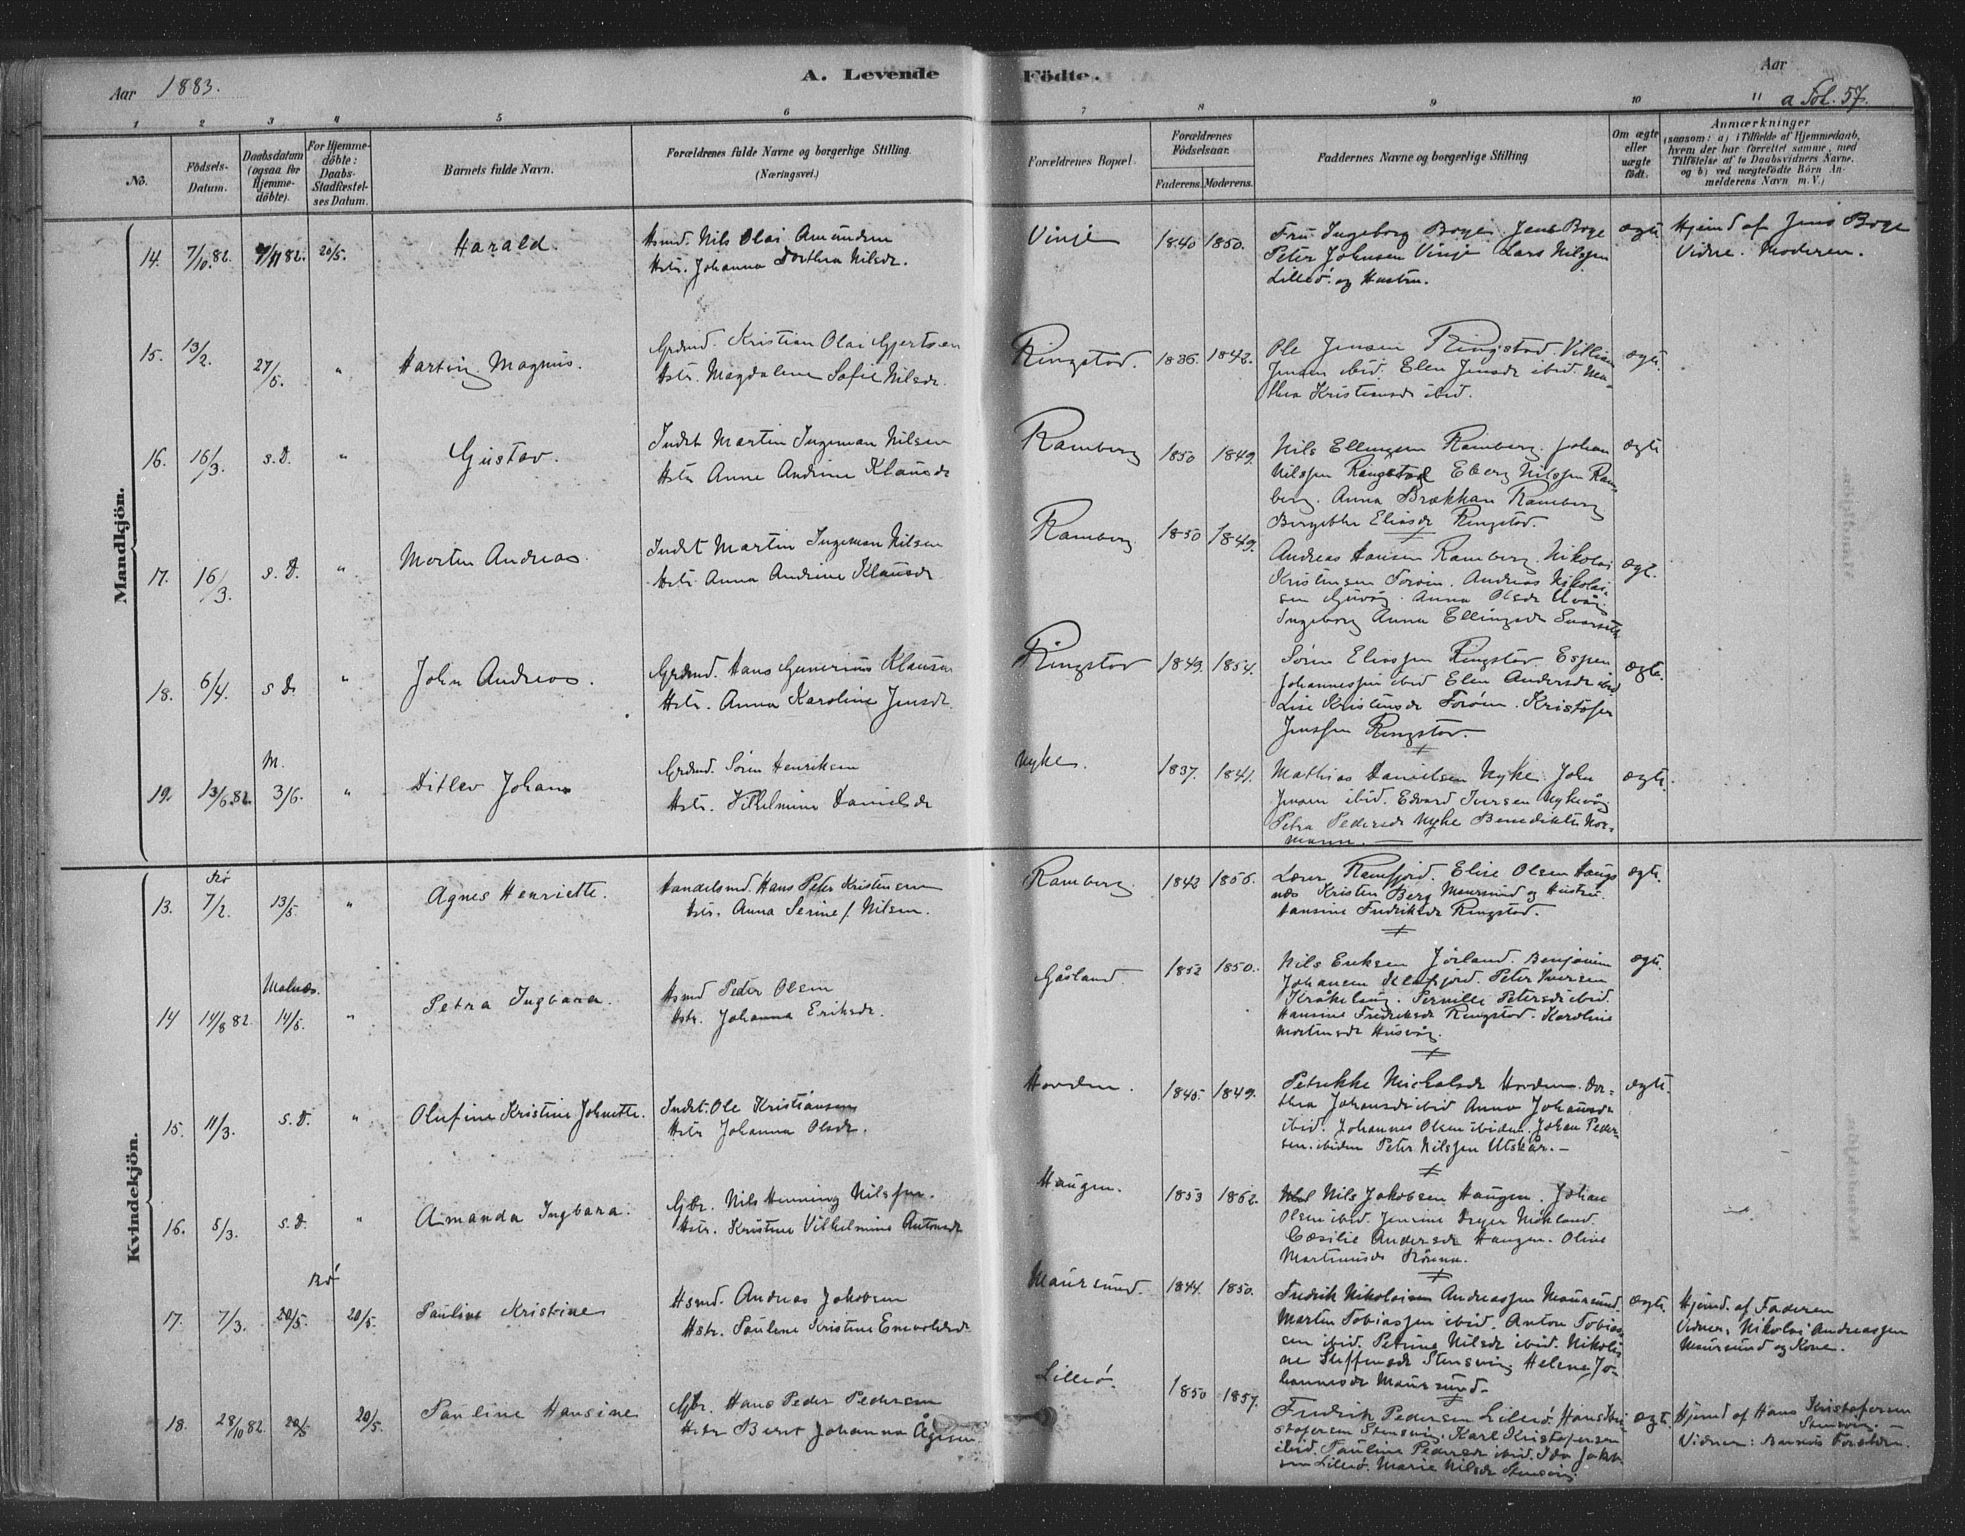 Aar 1883.
A. Levende Födte.
Aar
a Fol. 57.
1 2 3 4 5 6 7 8 9 10 11
No.
Födsels-Datum.
Daabsdatum (ogsaa for Hjemmedöbte).
For Hjemmedöbte: Daabs-Stadfæstelses Datum.
Barnets fulde Navn.
Forældrenes fulde Navne og borgerlige Stilling (Næringsvei.)
Forældrenes Bopæl.
Forældrenes Födselsaar.
Faderens. Moderens.
Faddernes Navne og borgerlige Stilling
Om ægte eller uægte födt.
Anmærkninger
(saasom: a) i Tilfælde af Hjemmedaab, hvem der har forrettet samme, med Tilföielse af to Daabsvidners Navne. og b) ved uægtefödte Börn Anmelderens Navn m. V.)
Mandkjön.
14. 7/10 82. 7/11 82. 20/5. Harald. Hsmd. Nils Olai Amundsen
Hstr. Johanna Dorthea Nilsdr.
Vinje 1840 1850.
Fru Ingeborg Boge. Jens Boge
Peter Johnsen Vinje Lars Nilssen
Lilleö. og Hustru.
ægte
Hjemd af Jens Boge
Vidne. Moderen.
15. 13/2. 27/5. " Harting Magnus.
Grdmd. Kristian Olai Gjertsen
Hstr. Magdalena Sofie Nilsdr.
Ringstad. 1836 1842.
Ole Jensen Ringstad. Villum
Jensen ibid. Elen Jensdr ibid. Ma-
thea Kristiansdr ibid.
ægte.
16. 16/3. s. D. " Gustav.
Indst Martin Ingeman Nilsen
Hstr Anne Andrine Klausdr
Ramberg 1850 1849.
Nils Ellingsen Ramberg. Johan
Nilssen Ringstad Eberg Nilssen Ram-
berg. Anna Brækkan Ramberg
Eliasdr Ringstad.
ægte
17. 16/3. s. D. " Morten Andreas
Indst Martin Ingeman Nilsen
Hstr Anna Andrine Klausdr
Ramberg 1850 1849.
Andreas Hansen Ramberg. Nikolai
Kristensen Foröen. Andreas Nikolai-
sen Gjuvåg. Anna Olsdr Uvåg
Ingeborg Anna Ellingsdr
ægt.
18. 6/4. s D. " John Andreas.
Grdmd. Hans Gunerius Klausen
Hstr. Anna Karoline Jensdr.
Ringstad 1849. 1854.
Sören Eliassen Ringstad. Espen
Johannessen ibid Elen Andersdr ibid.
Lise Kristensdr Foröen. Kristofer
Jenssen Ringstad.
ægte.
M.
19. 13/6. 82. 3/6. " Ditlev Johan
Grdmd. Sören Henriksen
Hstr. Vilhelmine Danielsdr
Nyke. 1837. 1841.
Mathias Danielsen Nyke. John
Jensen ibid. Edvard Iversen Nykevåg
Petra Pedersdr Nyke Benedikte Nor-
mann.
ægte.
Kvindekjön.
Bö
13. 7/2. 13/5. " Agnes Henriette.
Handelsmd. Hans Peter Kristensen
Hstr. Anna Serine f Nilsen.
Ramberg. 1842 1856.
Lærer Ramfjord. Elise Olsen Haugs-
næs Kristen Berg Maursund og Hustru.
Hansine Fredriksdr Ringstad.
ægte.
Malnæs.
14 14/8 82. 14/5. " Petra Ingbara.
Hsmd Peder Olsen
Hstr. Johanna Eriksdr.
Gåsland 1852 1850.
Nils Eriksen Jörland. Benjamin
Johansen Klefjord. Peter Iversen
Kråkeling. Pernille Petersdr ibid.
Hansine Fredriksdr Ringstad. Karoline
Mortensdr Husvåg.
ægte.
15. 11/3. s. D. " Olufine Kristine Johnette.
Indst. Ole Kristiansen
Hstr Johanna Olsdr.
Hovden. 1845. 1849.
Petrikke Nicholsdr Hovden. Dor-
thea Johansdr ibid Anna Johansdr
ibid. Johannes Olsen ibidem. Johan Peder-
sen. ibidem Peter Nilssen Utskår.
ægte.
16. 5/3. s. D. " Amanda Ingbara.
Gbr. Nils Henning Nilssen.
Hstr. Kristine Vilhelmine Antonsdr
Haugen. 1853 1862.
Nils Jakobsen Haugen. Johan
Olsen ibid. Jensine Dreyer Mökland
Cæsilie Andersdr Haugen. Oline
Martinusdr Rönna.
Bö
17. 7/3. 20/5. 20/5. Pauline Kristine
Hsmd. Andreas Jakobsen
Hstr. Paulene Kristine Enevoldsdr
Maursund. 1844. 1850.
Fredrik Nikolaisen Andreassen Maursund.
Martin Tobiassen ibid. Anton Tobias-
sen ibid. Petrine Nilsdr ibid. Nikoli-
ne Steffensdr Stensvåg Helene Jo-
hannesdr Maursund.
ægte.
Hjemd. af Faderen
Vidner. Nikolai Andreassen
Maursund og Kone.
18. 28/10 82. 20/5 20/5. Pauline Hansine
Gbr. Hans Peder Pedersen
Hstr Berit Johanna Ågesen
Lilleö. 1850 1857.
Fredrik Pedersen Lilleö. Hans Kri-
stofersen Stensvåg. Karl Kristofersen
ibid. Pauline Pedersdr ibid. Ida Jakob-
sen Lilleö. Marie Nilsdr Stensvåg
ægt.
Hjemd af Hans Kristofersen
Stensvåg.
Vidner: